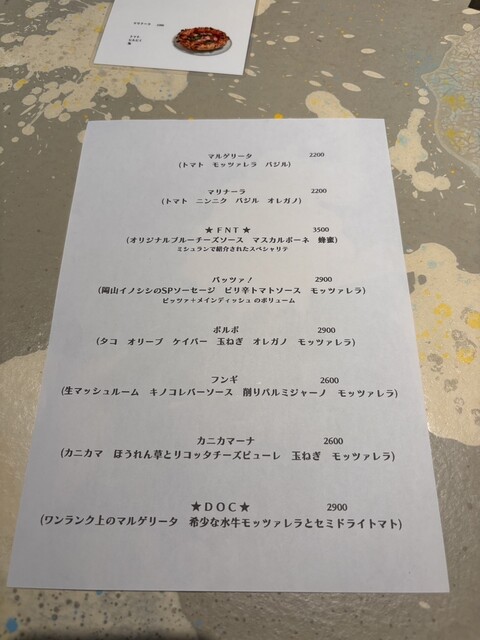 マルゲリータ 2200
(トマト モッツァレラ バジル)
マリナーラ 2200
(トマト ニンニク バジル オレガノ)
★FNT★ 3500
(オリジナルブルーチーズソース マスカルポーネ 蜂蜜)
ミシュランで紹介されたスペシャリテ
パッツァ! 2900
(岡山イノシシのSPソーセージ ピリ辛トマトソース モッツァレラ)
ピッツァ+メインディッシュ のボリューム
ポルポ 2900
(タコ オリーブ ケイパー 玉ねぎ オレガノ モッツァレラ)
フンギ 2600
(生マッシュルーム キノコレバーソース 削りパルミジャーノ モッツァレラ)
カニカマーナ 2600
(カニカマ ほうれん草とリコッタチーズピューレ 玉ねぎ モッツァレラ)
★DOC★ 2900
(ワンランク上のマルゲリータ 希少な水牛モッツァレラとセミドライトマト)